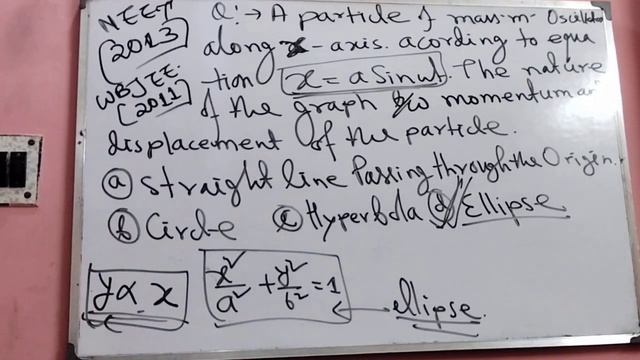 NEET
[2013]
WBJEE.
[2011]
Q:→ A particle of mass-m- Oscillate
along x-axis. acording to equa
tion x = a Sin ωt. The nature
of the graph b/w momentum an
displacement of the particle.
(a) straight line Passing through the Origen.
(b) Circle (c) Hyperbola (d) Ellipse
y α x x²/a² + y²/b² = 1 ← ellipse.